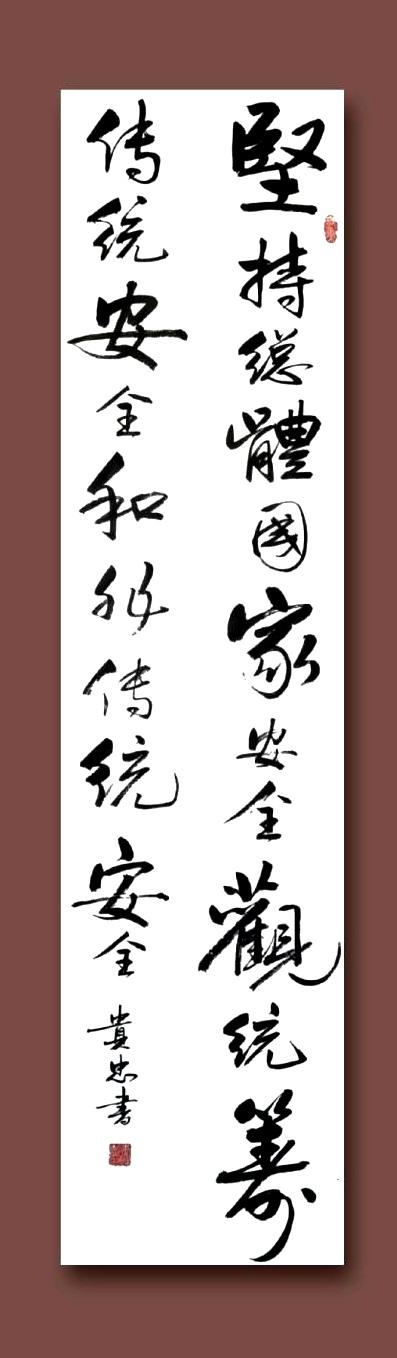 堅持總體國家安全觀統籌
傳統安全和非傳統安全
貴忠書